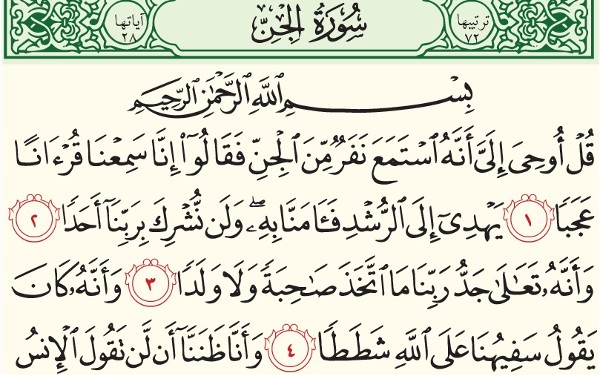 ترتيبها ٧٢ سُورَةُ الجِنّ آياتها ٢٨
بِسْمِ ٱللَّهِ ٱلرَّحْمَٰنِ ٱلرَّحِيمِ
قُلْ أُوحِىَ إِلَىَّ أَنَّهُ ٱسْتَمَعَ نَفَرٌ مِّنَ ٱلْجِنِّ فَقَالُوٓا۟ إِنَّا سَمِعْنَا قُرْءَانًا
عَجَبًا ١ يَهْدِىٓ إِلَى ٱلرُّشْدِ فَـَٔامَنَّا بِهِۦ ۖ وَلَن نُّشْرِكَ بِرَبِّنَآ أَحَدًا ٢
وَأَنَّهُۥ تَعَٰلَىٰ جَدُّ رَبِّنَا مَا ٱتَّخَذَ صَٰحِبَةً وَلَا وَلَدًا ٣ وَأَنَّهُۥ كَانَ
يَقُولُ سَفِيهُنَا عَلَى ٱللَّهِ شَطَطًا ٤ وَأَنَّا ظَنَنَّآ أَن لَّن تَقُولَ ٱلْإِنسُ